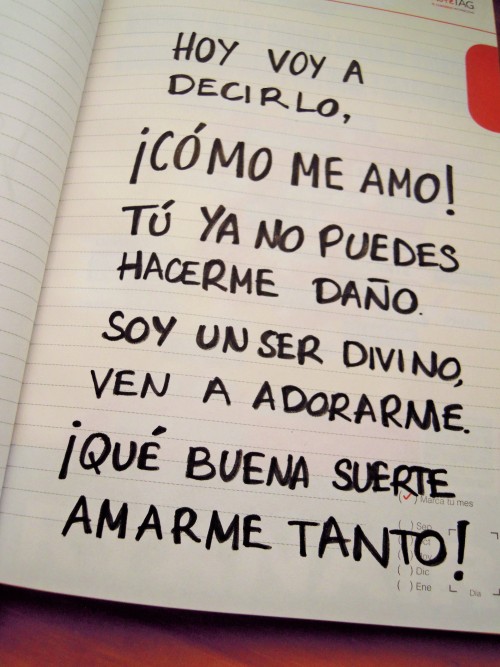 TAG
HOY VOY A
DECIRLO,
¡CÓMO ME AMO!
TÚ YA NO PUEDES
HACERME DAÑO.
SOY UN SER DIVINO,
VEN A ADORARME.
¡QUÉ BUENA SUERTE
AMARME TANTO!
Marca tu mes
( ) Sep
( ) Dic
( ) Ene
Día